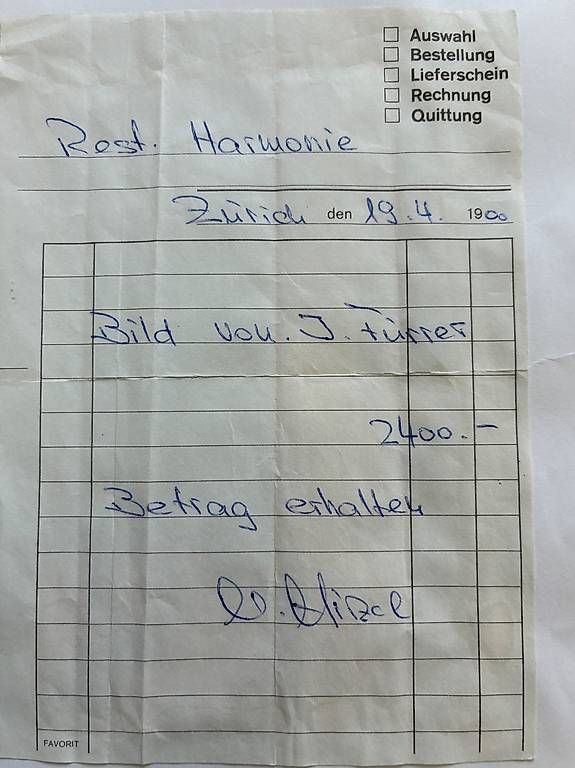 Auswahl
Bestellung
Lieferschein
Rechnung
Quittung
Rest. Harmonie
Zürich den 19.4. 1900
Bild von. J. Furrer
2400.-
Betrag erhalten
FAVORIT